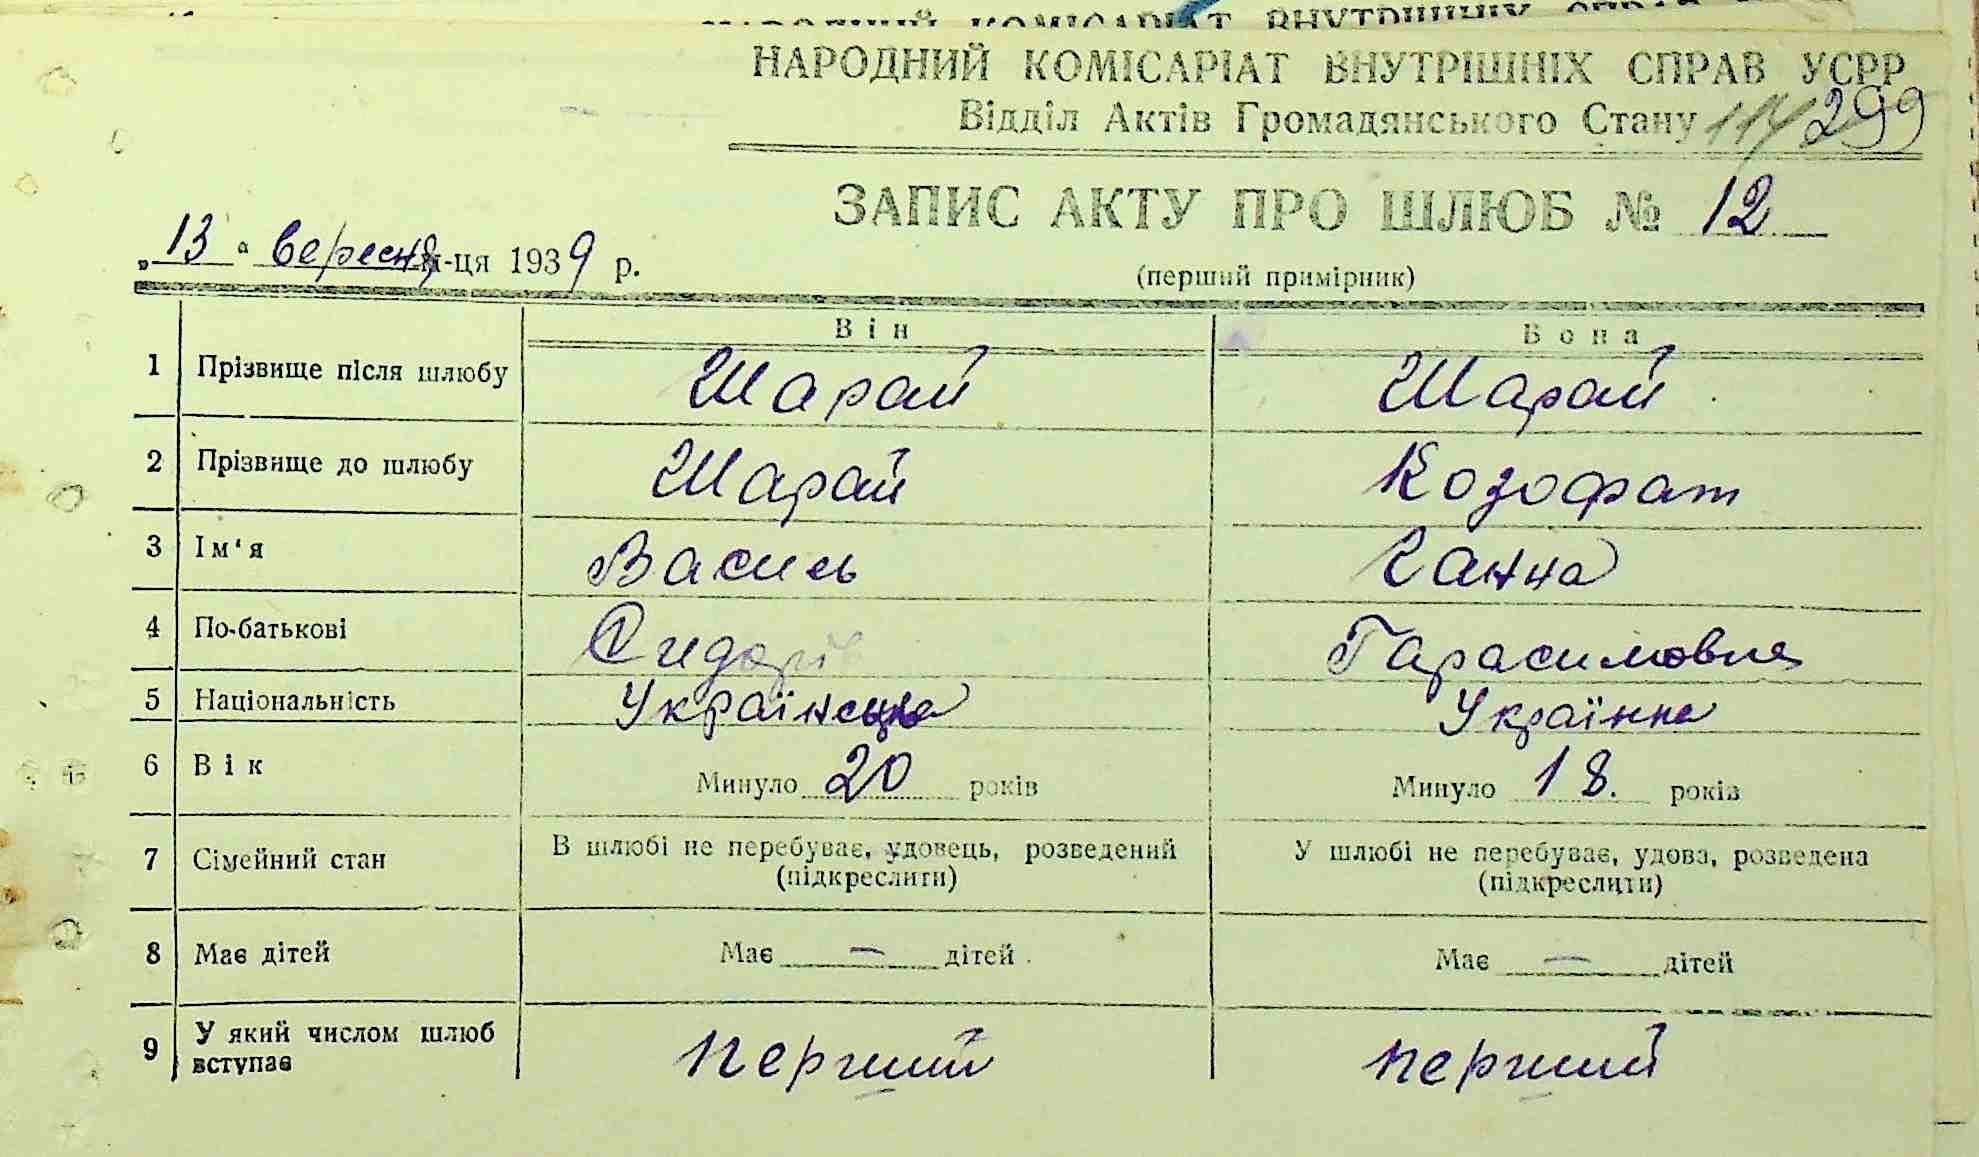 НАРОДНИЙ КОМІСАРІАТ ВНУТРІШНІХ СПРАВ УСРР
Відділ Актів Громадянського Стану 114 299
ЗАПИС АКТУ ПРО ШЛЮБ № 12
„13“ вересня м-ця 1939 р.
(перший примірник)
Він Вона
1 Прізвище після шлюбу Шарай Шарай
2 Прізвище до шлюбу Шарай Козофат
3 Ім‘я Василь Ганна
4 По-батькові Сидорів Гарасимовна
5 Національність Українець Українка
6 Вік Минуло 20 років Минуло 18. років
7 Сімейний стан В шлюбі не перебуває, удовець, розведений У шлюбі не перебуває, удова, розведена
(підкреслити) (підкреслити)
8 Має дітей Має — дітей Має — дітей
9 У який числом шлюб вступає перший перший